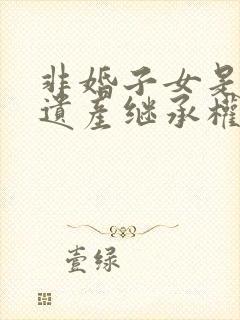 非婚子女是
遺產继承權
壹绿